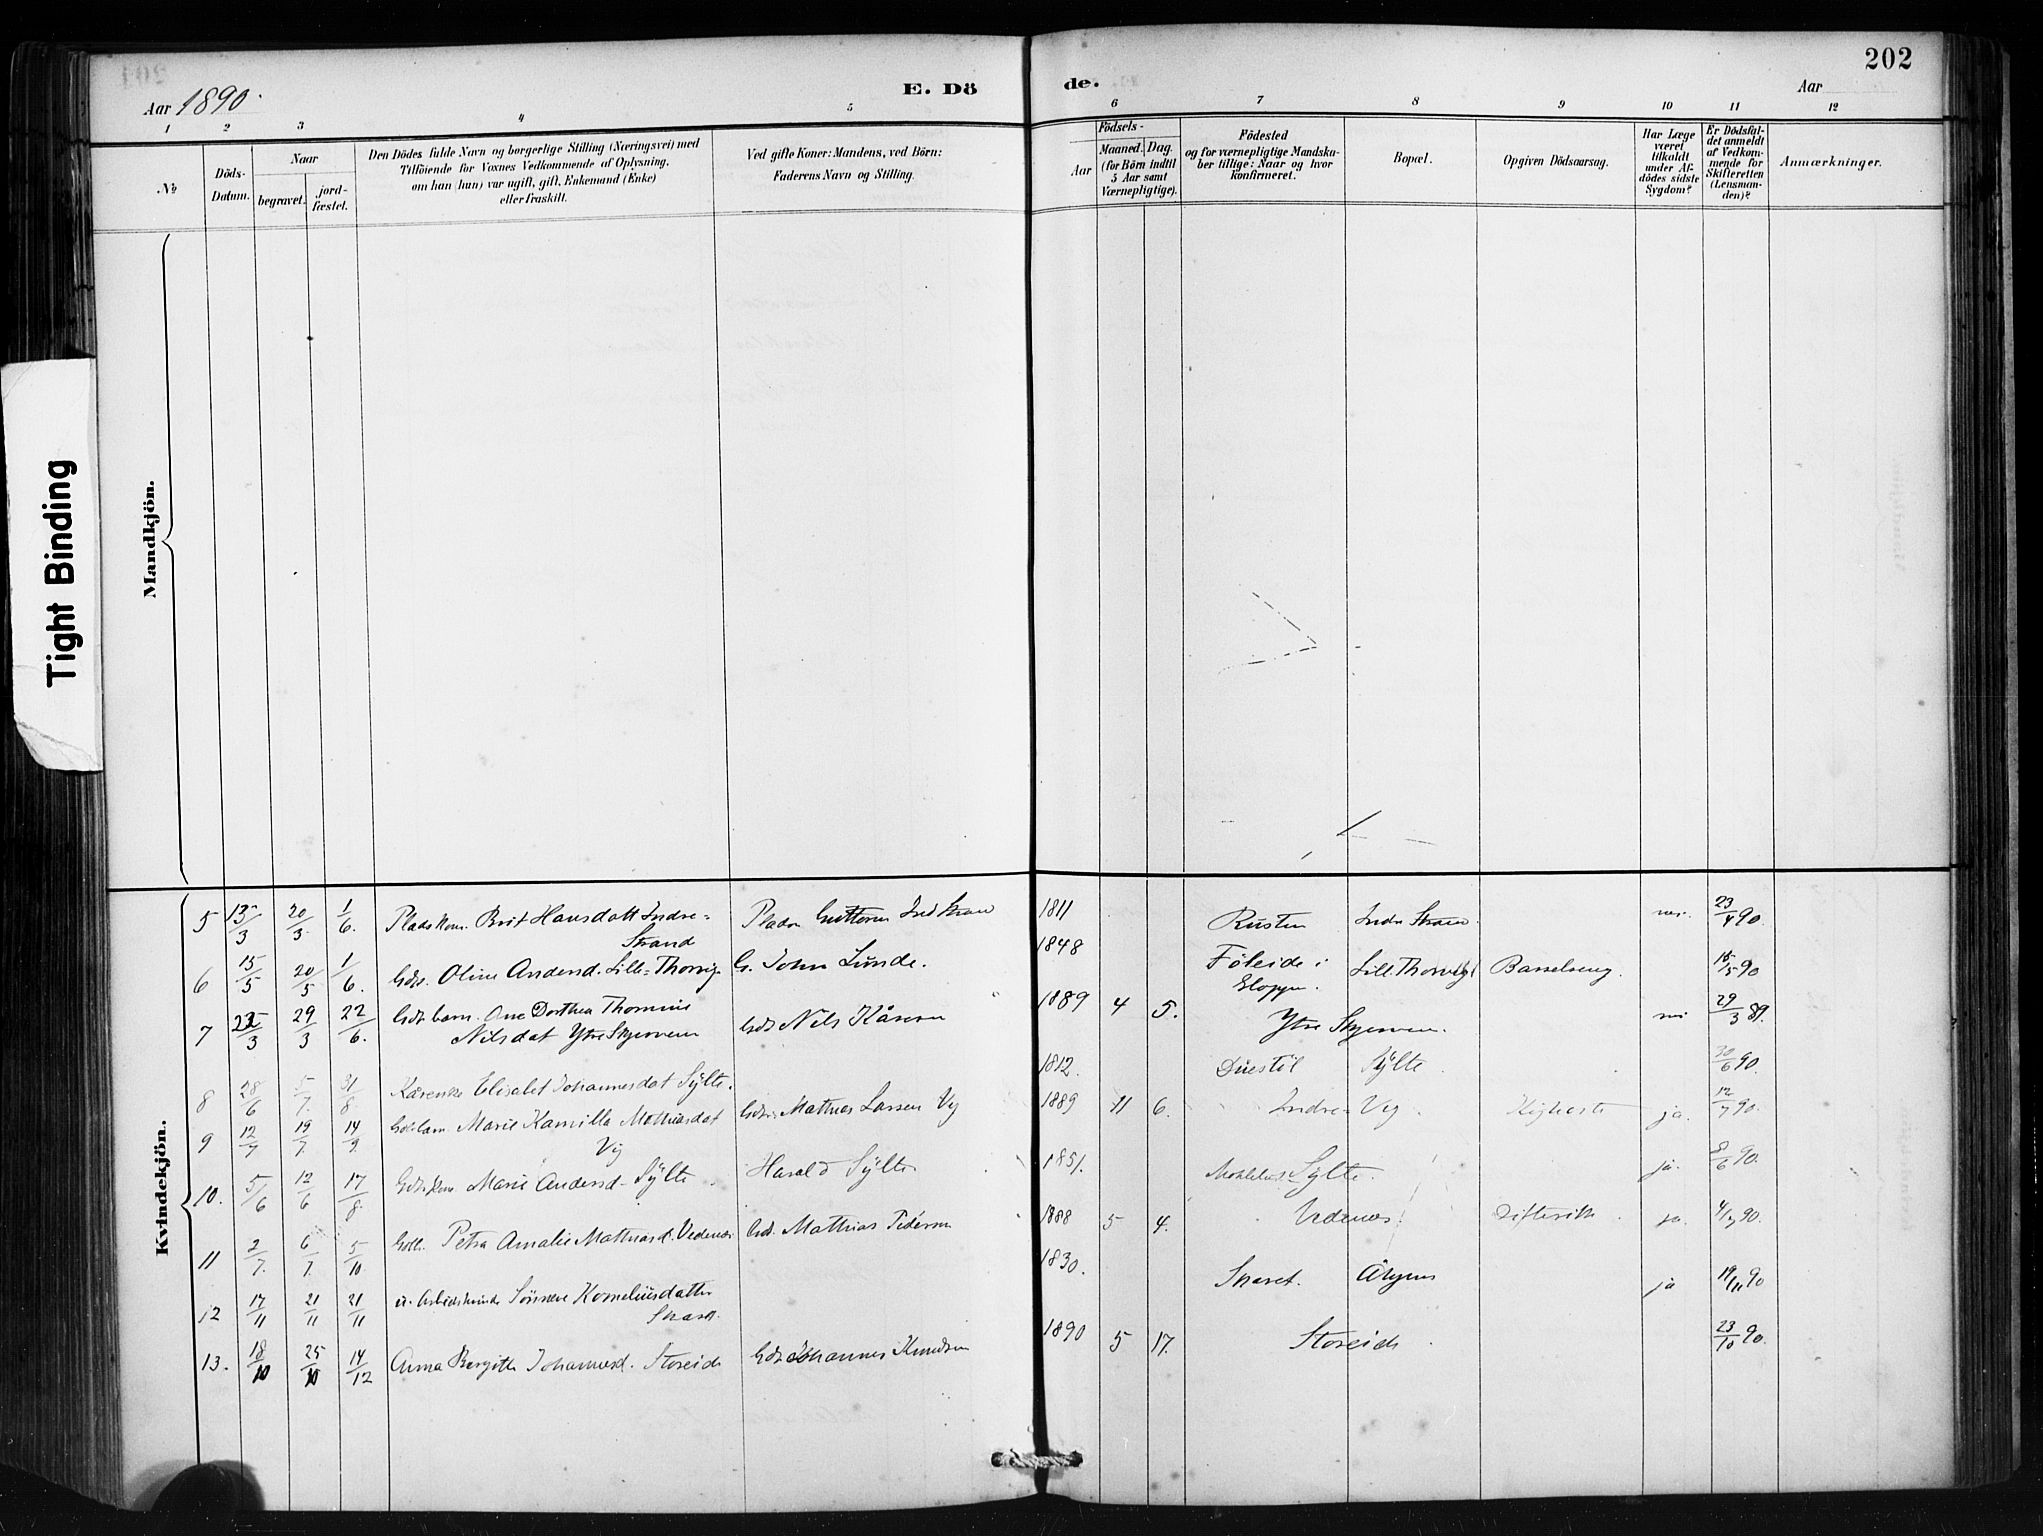 202
Aar 1890.
E. Dö
de.
Aar
1 2 3 4 5 6 7 8 9 10 11 12
No
Döds-
Datum.
Naar
begravet.
jord-
fæstet.
Den Dödes fulde Navn og borgerlige Stilling (Næringsvei) med
Tilföiende for Voxnes Vedkommende af Oplysning,
om han (hun) var ugift, gift, Enkemand (Enke)
eller fraskilt.
Ved gifte Koner: Mandens, ved Börn:
Faderens Navn og Stilling.
Födsels-
Aar
Maaned. Dag.
(for Börn indtil
5 Aar samt
Værnepligtige).
Födested
og for værnepligtige Mandska-
ber tillige: Naar og hvor
konfirmeret.
Bopæl.
Opgiven Dödsaarsag.
Har Læge
været
tilkaldt
under Af-
dödes sidste
Sygdom?
Er Dödsfal-
det anmeldt
af Vedkom-
mende for
Skifteretten
(Lensman-
den)?
Anmærkninger.
Mandkjön.
Tight Binding
Kvindekjön.
5 13/3 20/3 1/6. Brit Hansdatt Indre=
Strand
1811 Rusten Indre 23/4 90.
6 15/5 20/5 1/6. Oline Andersd. Lille= G. John Lunde.
1848 Föleide i
15/5 90
7 29/3 22/6. Ane Dorthea Thomine
Nilsdat Ytre Skjervem Nils
1889 4 5. Ytre Skjervem. 29/3 89.
8 28/6 5/7 31/8 Elisabet Johannesdat Sylte.
1812. Sylte 30/6 90.
9 12/7 19/7 14/9 Marie Kamilla Mathiasdat
Vig
Mathias Larsen Vig
1889 11 6. Indre- Vig Kighoste ja. 12/7 90.
10. 5/6 12/6 17/8 Marie Andersd. Sylte Harald Sylte
1851. Sylte. ja. 8/6 90.
11 2/7. 6/7. 5/10 Petra Amalie Mathiasd. Vedenes Mathias Pedersen
1888 5 4. Vedenes. Difterit ja. 90.
12 17/11 21/11 21/11 Korneliusdatter
1830. Skaret. ja 19/11 90
13. 18/10 25/10 14/12 Anna Bergitte Johannesd. Storeide Johannes Knudsen
1890 5 17. Storeide 23/10 90.